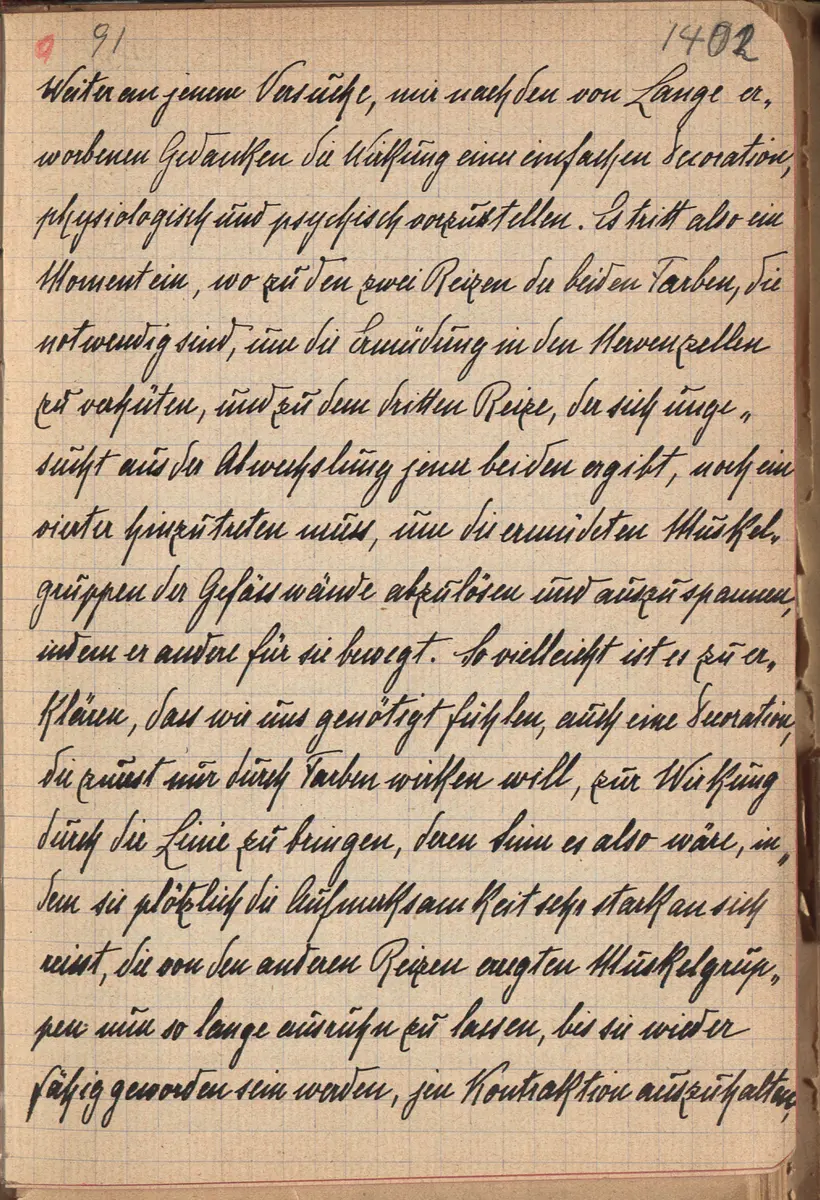 9 91 1402
Weiter an jenem Versuche, mir nach den von Lange er„
worbenen Gedanken die Wirkung einer einfachen Decoration,
physiologisch und psychisch vorzustellen. Es tritt also ein
Moment ein, wo zu den zwei Reizen der beiden Farben, die
notwendig sind, um die Ermüdung in den Nervenzellen
zu verhüten, und zu dem dritten Reize, der sich unge„
sucht aus der Abwechslung jener beiden ergibt, noch ein
vierter hinzutreten muss, um die ermüdeten Muskel„
gruppen der Gefässwände abzulösen und auszuspannen,
indem er andere für sie bewegt. So vielleicht ist es zu er„
klären, dass wir uns genötigt fühlen, auch eine Decoration,
die zuerst nur durch Farben wirken will, zur Wirkung
durch die Linie zu bringen, deren Sinn es also wäre, in„
dem sie plötzlich die Aufmerksamkeit sehr stark an sich
reisst, die von den anderen Reizen erregten Muskelgrup„
pen nun so lange ausruhn zu lassen, bis sie wieder
fähig geworden sein werden, jen Kontraktion auszuhalten,